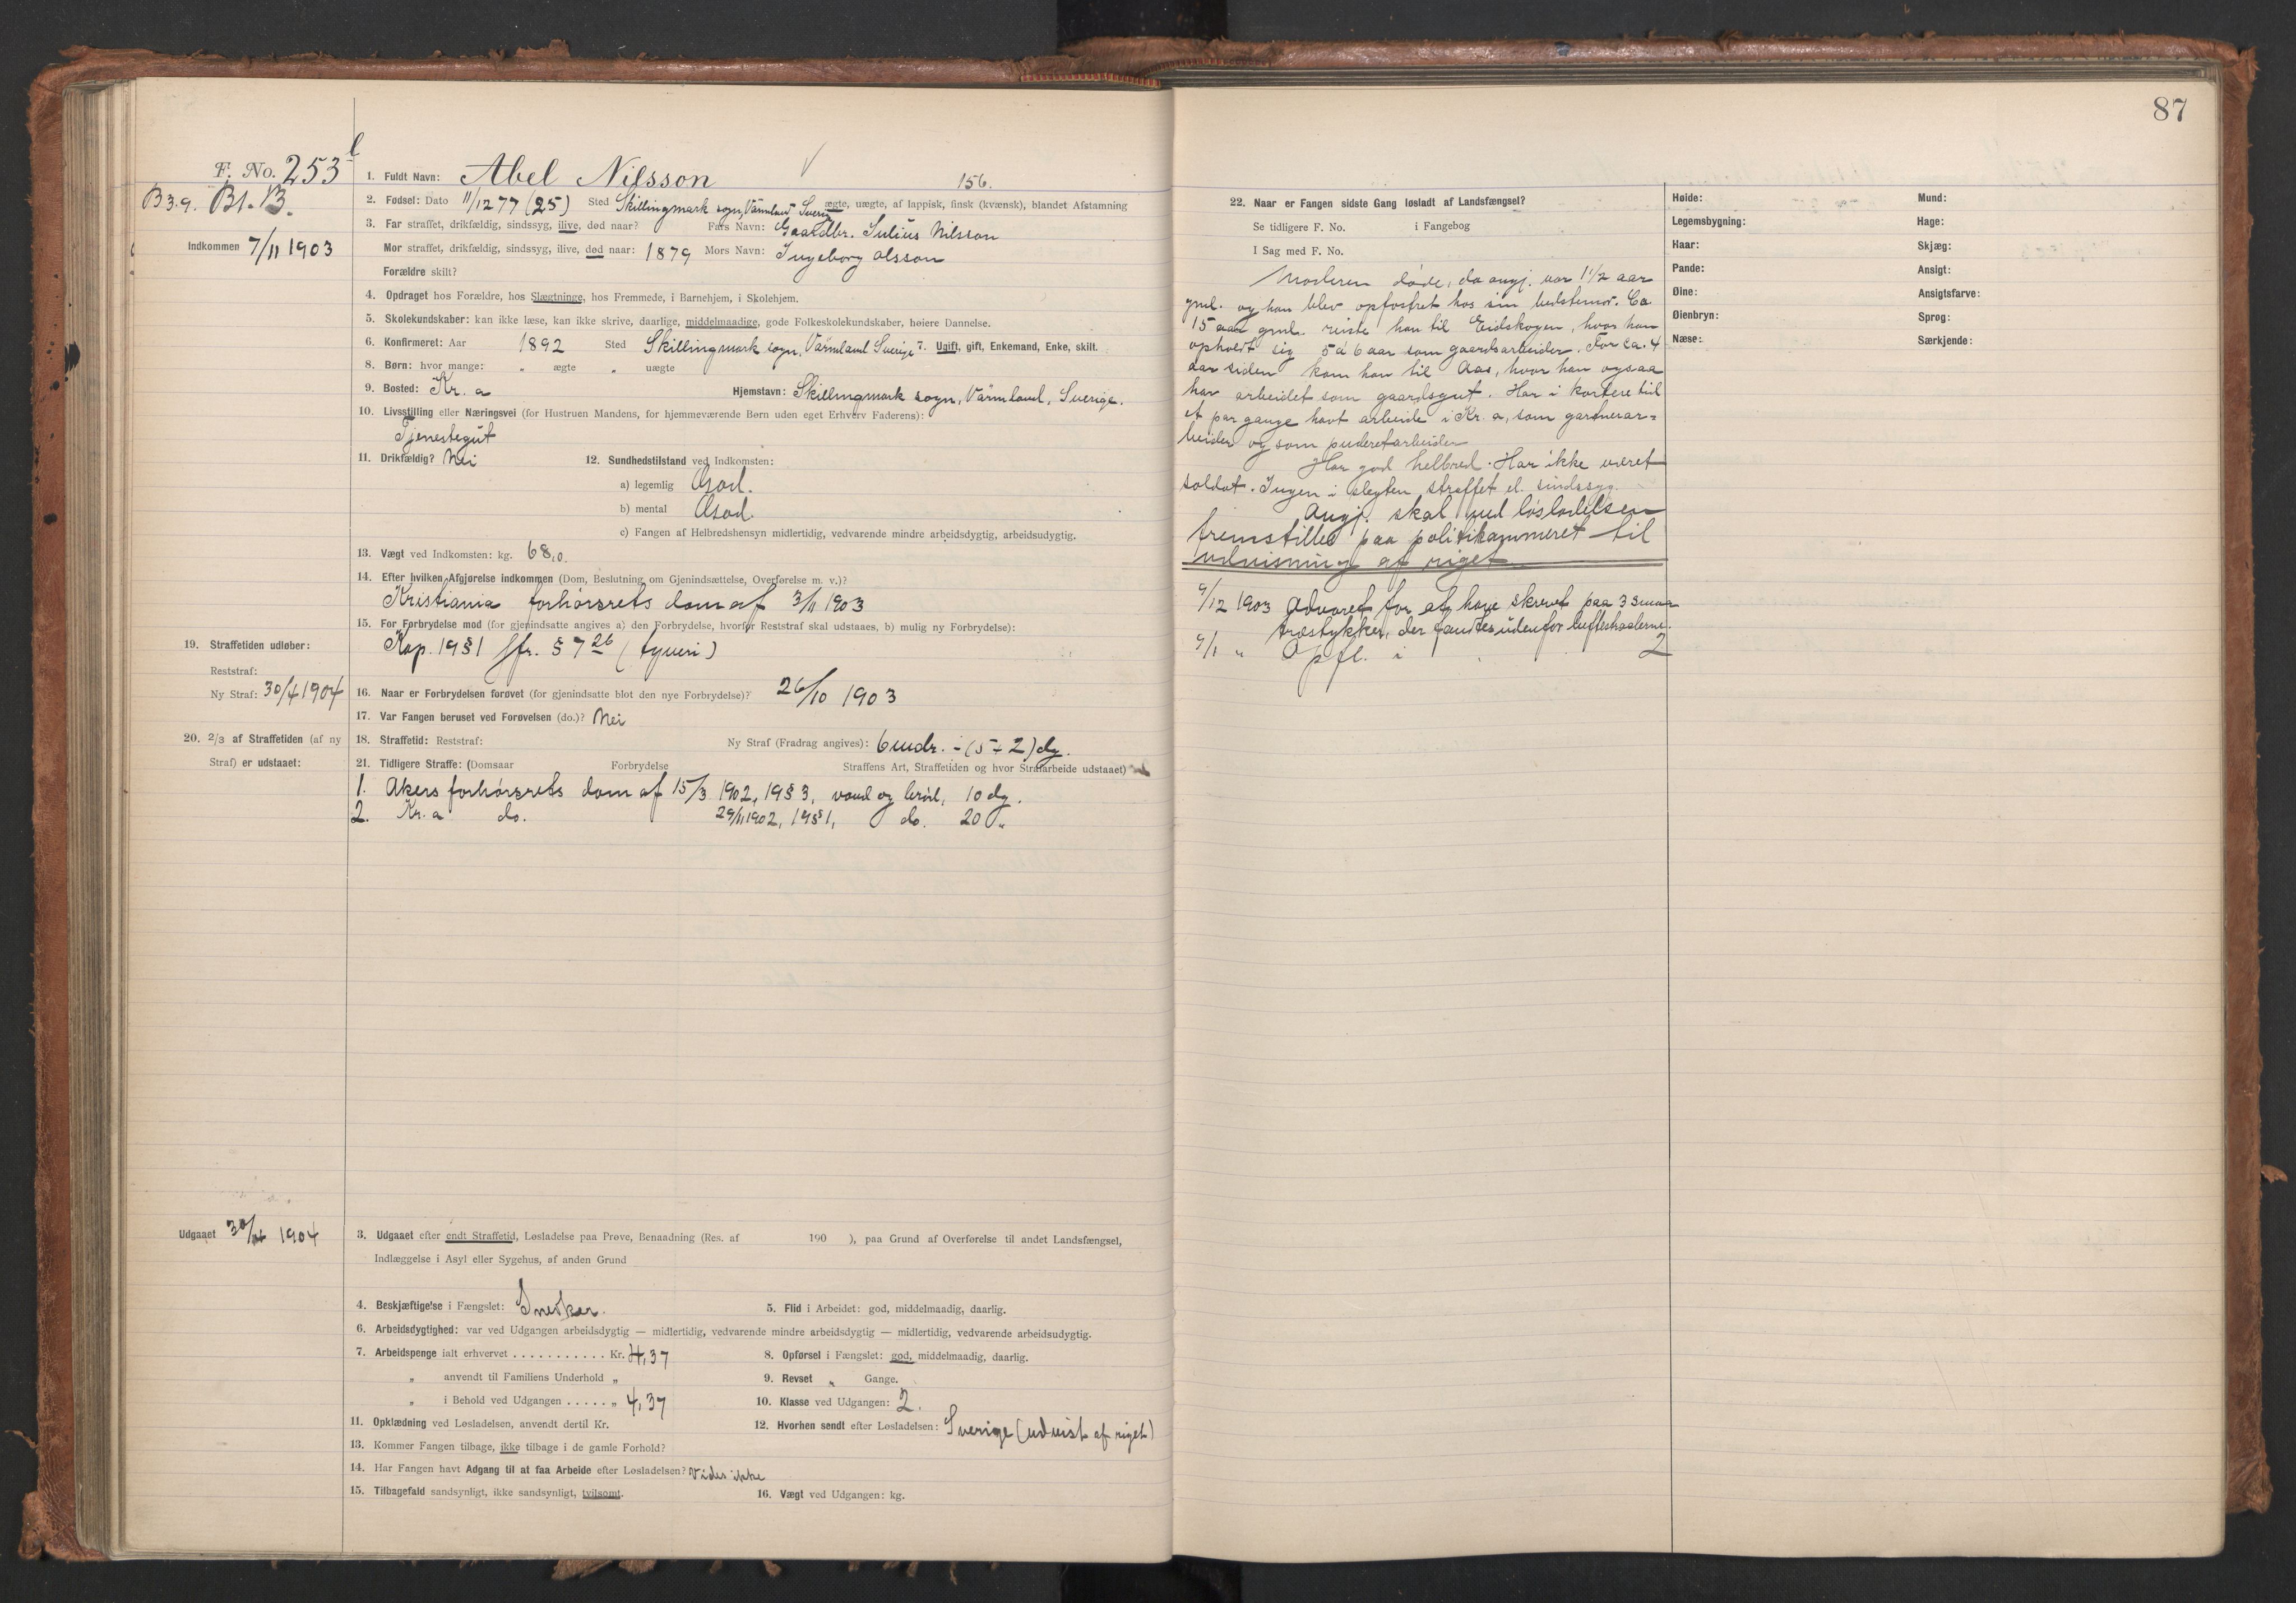 87
F. No. 253
B 3.9. Bl. B.
Indkommen 7/11 1903
1. Fuldt Navn: Abel Nilsson 156.
2. Fødsel: Dato 11/12 77 (25) Sted Skillingmark sogn, Värmland Sverige ægte, uægte, af lappisk, finsk (kvænsk), blandet Afstamning
3. Far straffet, drikfældig, sindssyg, ilive, død naar? Fars Navn: Gaardbr. Julius Nilsson
Mor straffet, drikfældig, sindssyg, ilive, død naar: 1879 Mors Navn: Ingeborg Olsson
Forældre skilt?
4. Opdraget hos Forældre, hos Slægtninge, hos Fremmede, i Barnehjem, i Skolehjem.
5. Skolekundskaber: kan ikke læse, kan ikke skrive, daarlige, middelmaadige, gode Folkeskolekundskaber, høiere Dannelse.
6. Konfirmeret: Aar 1892 Sted Skillingmark sogn, Värmland Sverige 7. Ugift, gift, Enkemand, Enke, skilt.
8. Børn: hvor mange: „ ægte „ uægte
9. Bosted: Kr. a Hjemstavn: Skillingmark sogn, Värmland, Sverige.
10. Livsstilling eller Næringsvei (for Hustruen Mandens, for hjemmeværende Børn uden eget Erhverv Faderens):
Tjenestegut
11. Drikfældig? Nei 12. Sundhedstilstand ved Indkomsten:
a) legemlig God.
b) mental God.
c) Fangen af Helbredshensyn midlertidig, vedvarende mindre arbejdsdygtig, arbeidsudygtig.
13. Vægt ved Indkomsten: kg. 68,0.
14. Efter hvilken Afgjørelse indkommen (Dom, Beslutning om Gjenindsættelse, Overførelse m. v.)?
Kristiania forhørsrets dom af 3/11 1903
15. For Forbrydelse mod (for gjenindsatte angives a) den Forbrydelse, hvorfor Reststraf skal udstaaes, b) mulig ny Forbrydelse):
Kap. 19 § 1 jfr. § 7 26 (tyveri)
19. Straffetiden udløber:
Reststraf:
Ny Straf: 30/4 1904
16. Naar er Forbrydelsen forøvet (for gjenindsatte blot den nye Forbrydelse)? 26/10 1903
17. Var Fangen beruset ved Forøvelsen (do.)? Nei
20. 2/3 af Straffetiden (af ny
Straf) er udstaaet:
18. Straffetid: Reststraf: Ny Straf (Fradrag angives): 6 mdr. ÷ (5 + 2) dg.
21. Tidligere Straffe: (Domsaar Forbrydelse Straffens Art, Straffetiden og hvor Strafarbeide udstaaet)
1. Akers forhørsrets dom af 15/3 1902, 19 § 3, vand og brød, 10 dg.
2. Kr. a do. 29/11 1902, 19 § 1, do. 20 „
Udgaaet 30/4 1904
3. Udgaaet efter endt Straffetid, Løsladelse paa Prøve, Benaadning (Res. af 190 ), paa Grund af Overførelse til andet Landsfængsel,
Indlæggelse i Asyl eller Sygehus, af anden Grund
4. Beskjæftigelse i Fængslet: Snedker. 5. Flid i Arbeidet: god, middelmaadig, daarlig.
6. Arbeidsdygtighed: var ved Udgangen arbeidsdygtig — midlertidig, vedvarende mindre arbeidsdygtig — midlertidig, vedvarende arbeidsudygtig.
7. Arbeidspenge ialt erhvervet . . . . . . . . . . . Kr. 4,37 8. Opførsel i Fængslet: god, middelmaadig, daarlig.
„ anvendt til Familiens Underhold „ 9. Revset „ Gange.
„ i Behold ved Udgangen . . . . . „ 4,37 10. Klasse ved Udgangen: 2.
11. Opklædning ved Løsladelsen, anvendt dertil Kr. 12. Hvorhen sendt efter Løsladelsen: Sverige (udvist af riget)
13. Kommer Fangen tilbage, ikke tilbage i de gamle Forhold?
14. Har Fangen havt Adgang til at faa Arbeide efter Løsladelsen? Vides ikke
15. Tilbagefald sandsynligt, ikke sandsynligt, tvilsomt. 16. Vægt ved Udgangen: kg.
22. Naar er Fangen sidste Gang løsladt af Landsfængsel?
Se tidligere F. No. i Fangebog
I Sag med F. No.
Moderen døde, da angj. var 1 1/2 aar
gml. og han blev opfostret hos sin bedstemor. Ca
15 aar gml. reiste han til Eidskogen, hvor han
opholdt sig 5 à 6 aar som gaardsarbeider. For ca. 4
aar siden kom han til Aas, hvor han ogsaa
har arbeidet som gaardsgut. Har i kortere tid
et par gange havt arbeide i Kr. a, som gartnerar-
beider og som pudretarbeider
Har god helbred. Har ikke været
soldat. Ingen i slegten straffet el. sindssyg.
Angj. skal ved løsladelsen
fremstilles paa politikammeret til
udvisning af riget
9/12 1903 Advaret for at have skrevet paa 3 smaa
træstykker, der fandtes udenfor luftehullerne.
9/1 „ Opfl. i 2
Høide:
Legemsbygning:
Haar:
Pande:
Øine:
Øienbryn:
Næse:
Mund:
Hage:
Skjæg:
Ansigt:
Ansigtsfarve:
Sprog:
Særkjende: